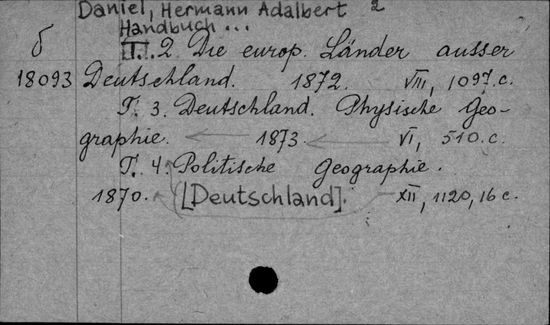 Daniel, Hermann Adalbert 2
Handbuch ...
б T. 2. Die europ. Länder ausser
18093 Deutschland. 1872. VIII, 1097. c.
T. 3. Deutschland. Physische Geo-
graphie. 1873. VI, 510. c.
T. 4. Politische Geographie.
1870. [Deutschland]. XII, 1120, 16 c.